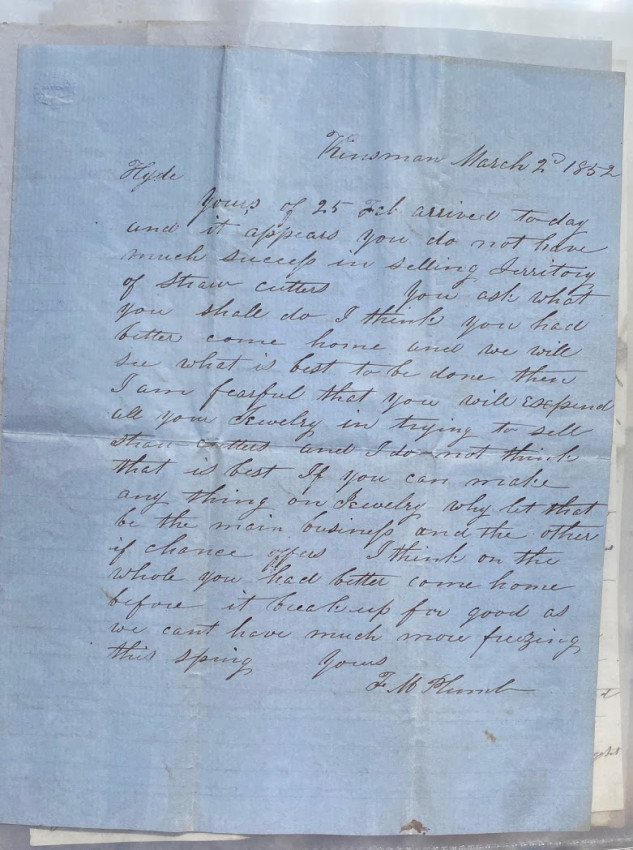 Kinsman March 2d 1852
Hyde
Yours of 25 Feb arrived to day
and it appears you do not have
much success in selling Territory
of straw cutters You ask what
you shall do I think you had
better come home and we will
see what is best to be done then
I am fearful that you will expend
all your Jewelry in trying to sell
straw cutters and I do not think
that is best If you can make
any thing on Jewelry why let that
be the main business and the other
if chance offers I think on the
whole you had better come home
before it break up for good as
we cant have much more freezing
this spring Yours
F M Plumb